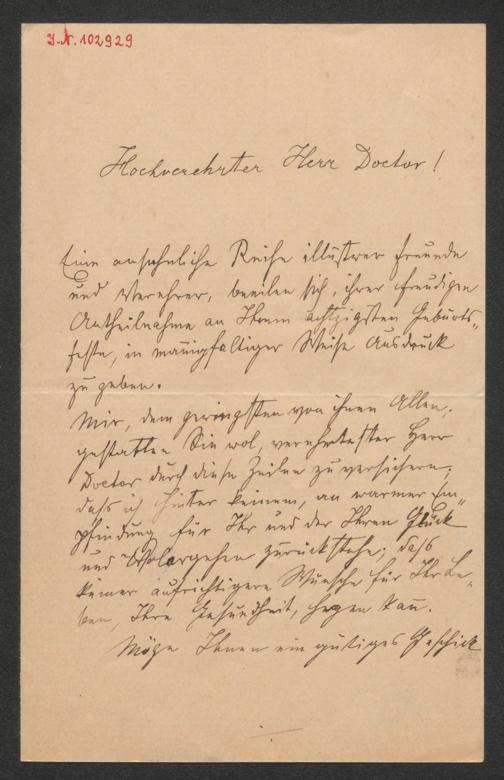 I.N. 102929
Hochverehrter Herr Doctor!
Eine ansehnliche Reihe illustrer Freunde
und Verehrer, beeilen sich, ihrer freudigen
Antheilnahme an Ihrem achtzigsten Geburts-
feste, in manigfaltiger Weise Ausdruck
zu geben.
Mir, dem geringsten von ihnen Allen,
gestatten Sie wol, verehrtester Herr
Doctor durch diese Zeilen zu versichern,
dass ich hinter keinem, an warmer Em-
pfindung für Ihr und der Ihren Glück
und Wolergehen zurückstehe; dass
keiner aufrichtigere Wünsche für Ihr Le-
ben, Ihre Gesundheit, hegen kan.
Möge Ihnen ein gütiges Geschick